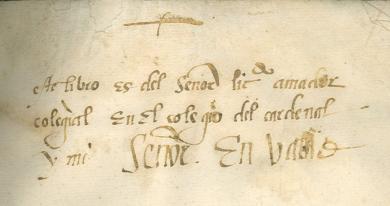 este libro es del señor licdo amador
colegial en el colegio del cardenal
y mi señor. En vallid